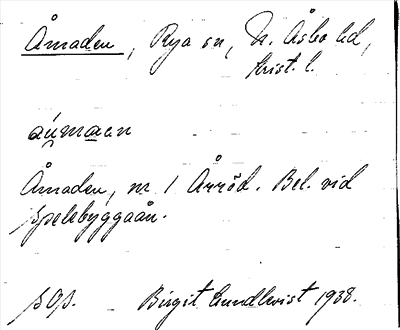 Åmaden, Rya sn, N. Åsbo hd,
Krist. l.
Åmaden, nr 1 Årröd. Bel. vid
Spelebyggaån.
sgs. Birgit Lundkvist 1938.